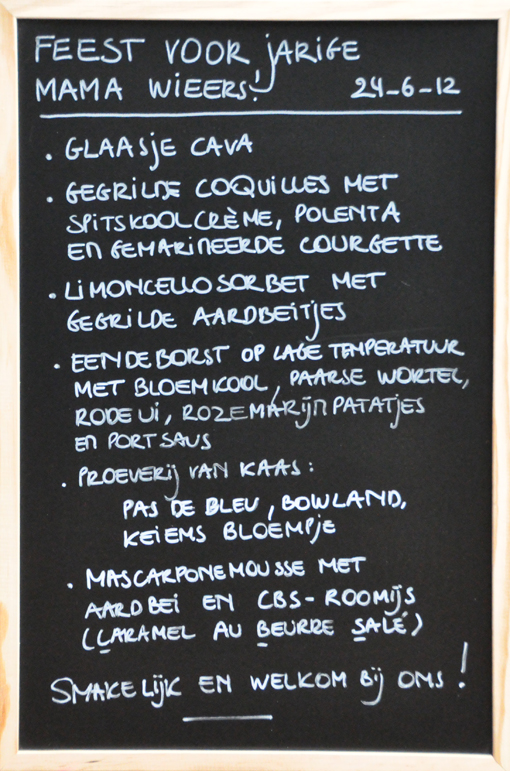 FEEST VOOR JARIGE
MAMA WIEERS! 24-6-12
. GLAASJE CAVA
. GEGRILDE COQUILLES MET
SPITSKOOLCRÈME, POLENTA
EN GEMARINEERDE COURGETTE
. LIMONCELLOSORBET MET
GEGRILDE AARDBEITJES
. EENDEBORST OP LAGE TEMPERATUUR
MET BLOEMKOOL, PAARSE WORTEL,
RODE UI, ROZEMARIJN PATATJES
EN PORTSAUS
. PROEVERIJ VAN KAAS:
PAS DE BLEU, BOWLAND,
KEIEMS BLOEMPJE
. MASCARPONEMOUSSE MET
AARDBEI EN CBS-ROOMIJS
(CARAMEL AU BEURRE SALÉ)
SMAKELIJK EN WELKOM BIJ ONS!